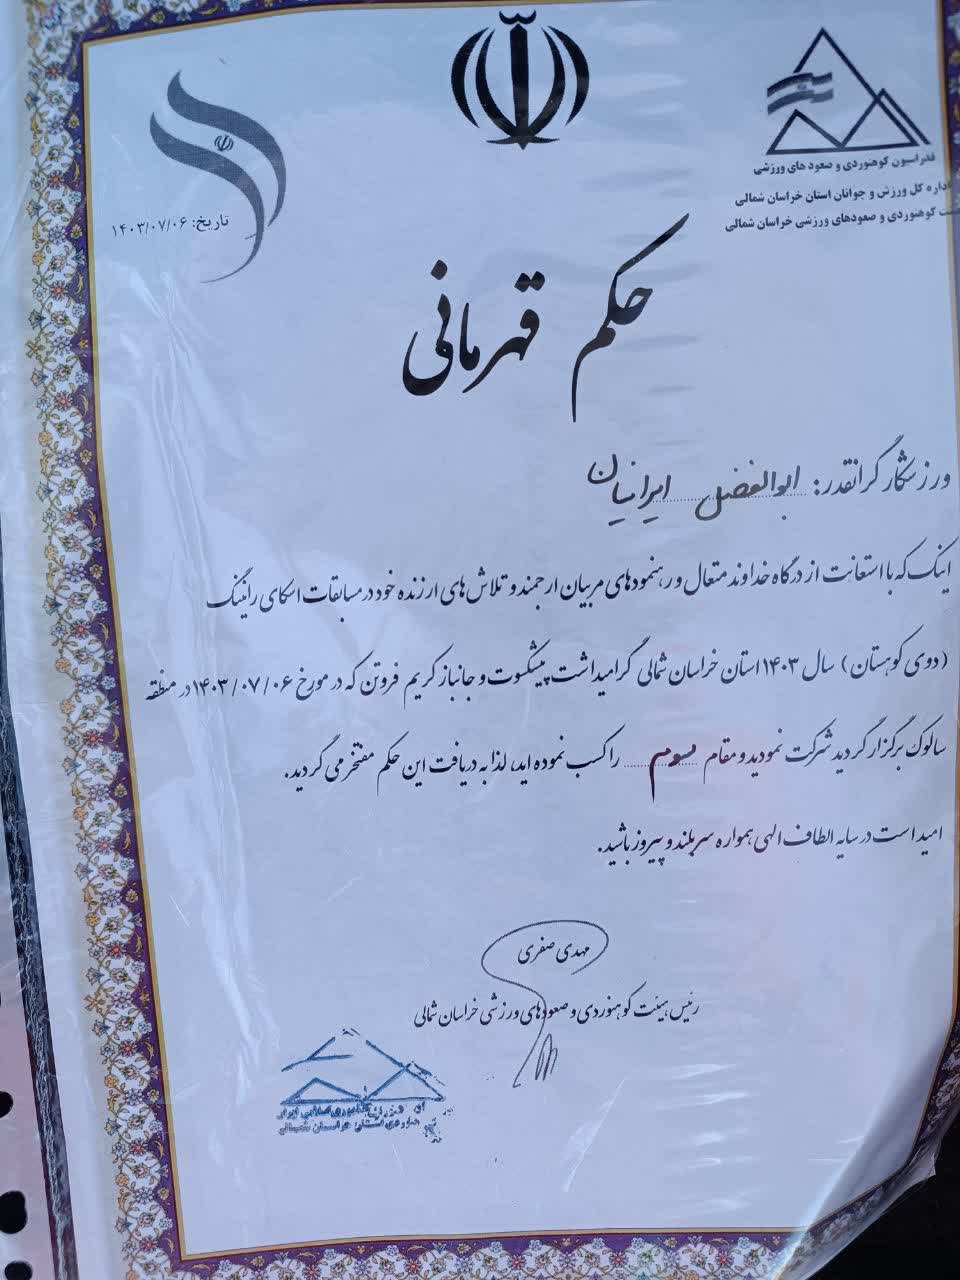 فدراسیون کوهنوردی و صعود های ورزشی
اداره کل ورزش و جوانان استان خراسان شمالی
کوهنوردی و صعودهای ورزشی خراسان شمالی
تاریخ: ۱۴۰۳/۰۷/۰۶
حکم قهرمانی
ورزشکار گرانقدر: ابوالفضل ایرانیان
اینک که با استعانت از درگاه خداوند متعال و رهنمودهای مربیان ارجمند و تلاش های ارزنده خود در مسابقات اسکای رانینگ
(دوی کوهستان) سال ۱۴۰۳ استان خراسان شمالی گرامیداشت پیشکسوت و جانباز کریم فروتن که در مورخ ۱۴۰۳/۰۷/۰۶ در منطقه
سالوک برگزار گردید شرکت نمودید و مقام سوم را کسب نموده اید، لذا به دریافت این حکم مفتخر می گردید.
امید است در سایه الطاف الهی همواره سربلند و پیروز باشید.
مهدی صفری
رئیس هیئت کوهنوردی و صعودهای ورزشی خراسان شمالی
جمهوری اسلامی ایران
استان خراسان شمالی